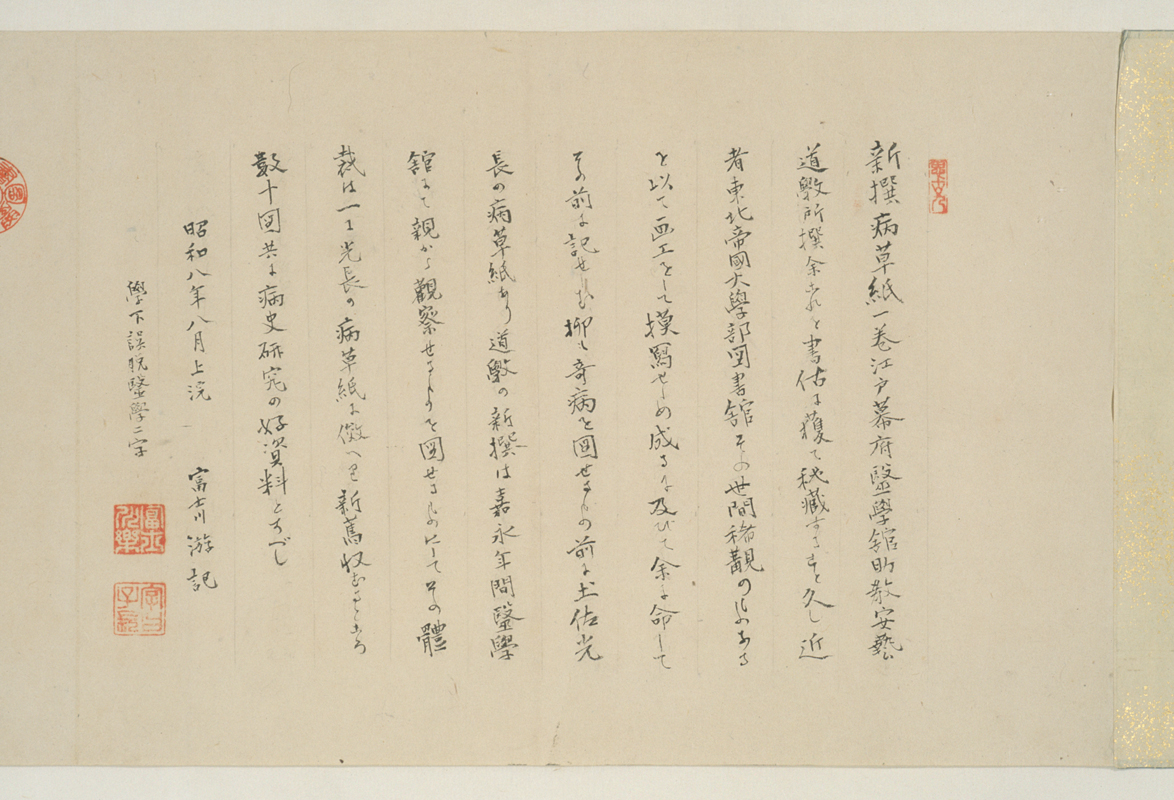 新撰病草紙一巻江戸幕府醫學館助教安藝
道敫所撰余これを書估に獲て秘藏すること久し近
者東北帝國大學部図書館その世間稀覯のものある
を以て画工をして摸寫せしめ成るに及びて余に命じて
その前に記せしむ抑も奇病を圖せるもの前に土佐光
長の病草紙あり道敫の新撰は嘉永年間醫學
館にて親から觀察せるものを図せるものにしてその體
裁は一に光長の病草紙に倣へり新舊収むるところ
數十図共に病史研究の好資料とすべし
昭和八年八月上浣 富士川游記
學下誤脱醫學二字
富士川游
字曰子長